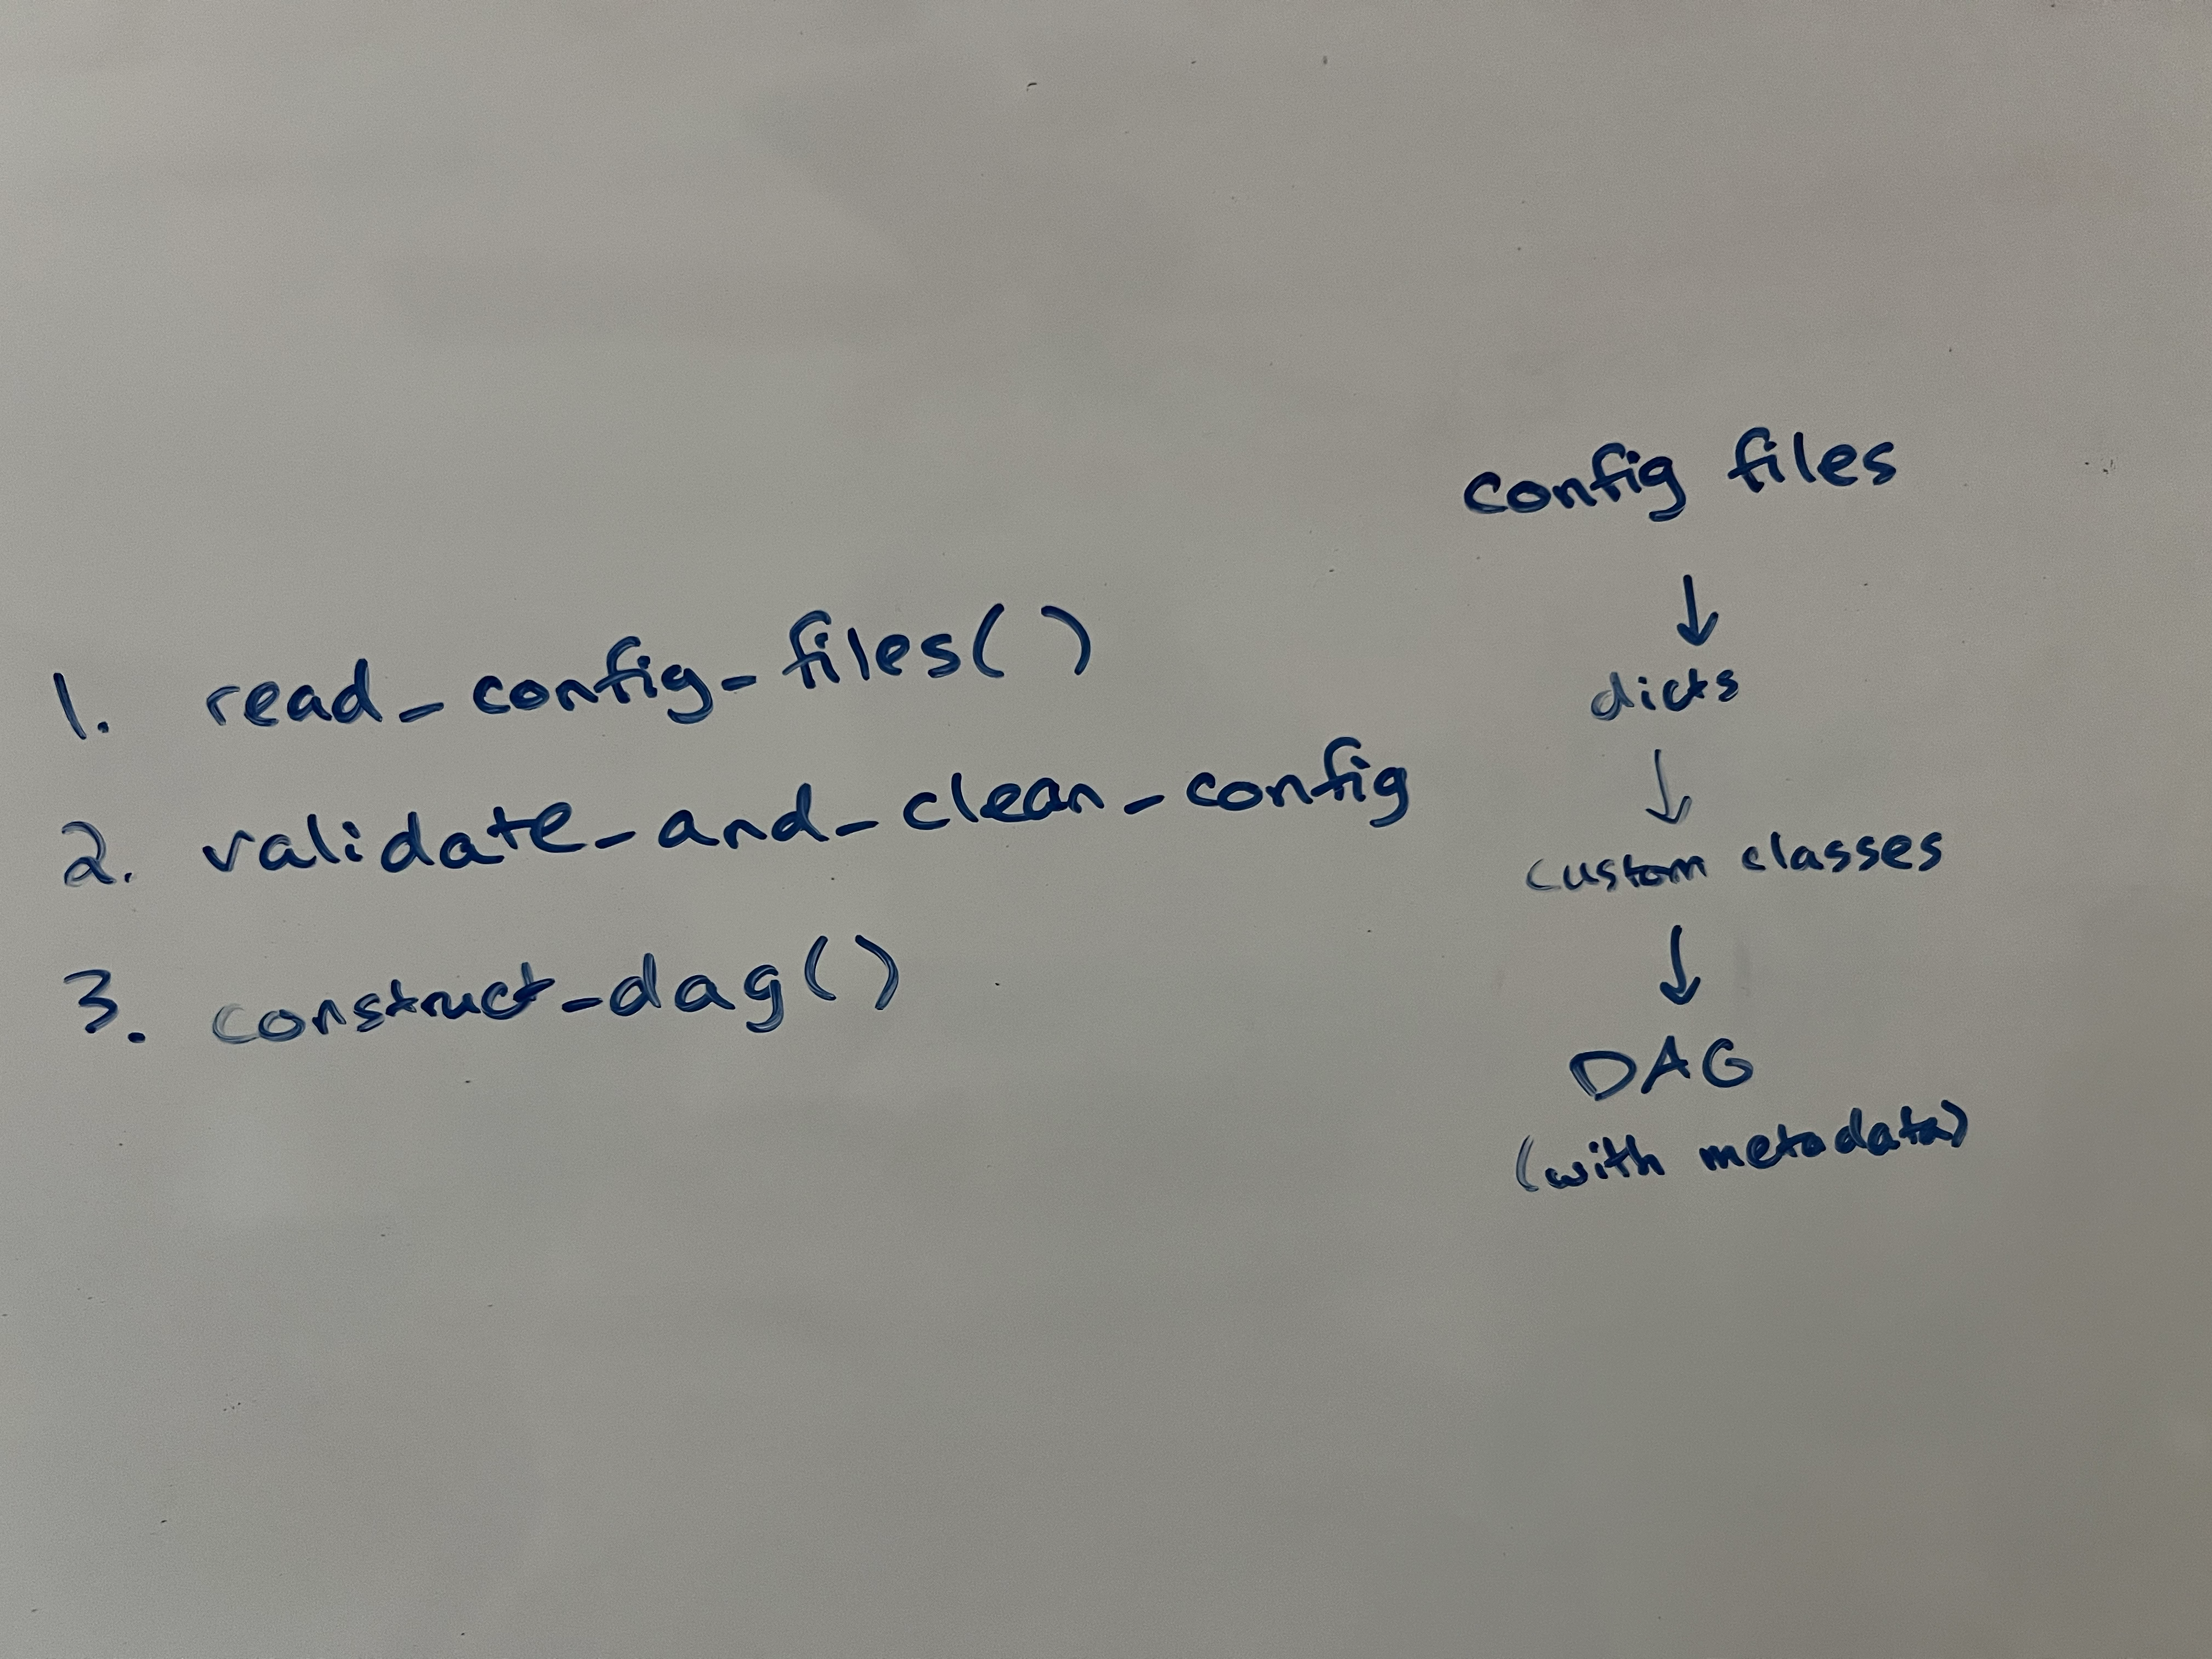 1. read_config_files()
2. validate_and_clean_config
3. construct_dag()
config files
↓
dicts
↓
custom classes
↓
DAG
(with metadata)